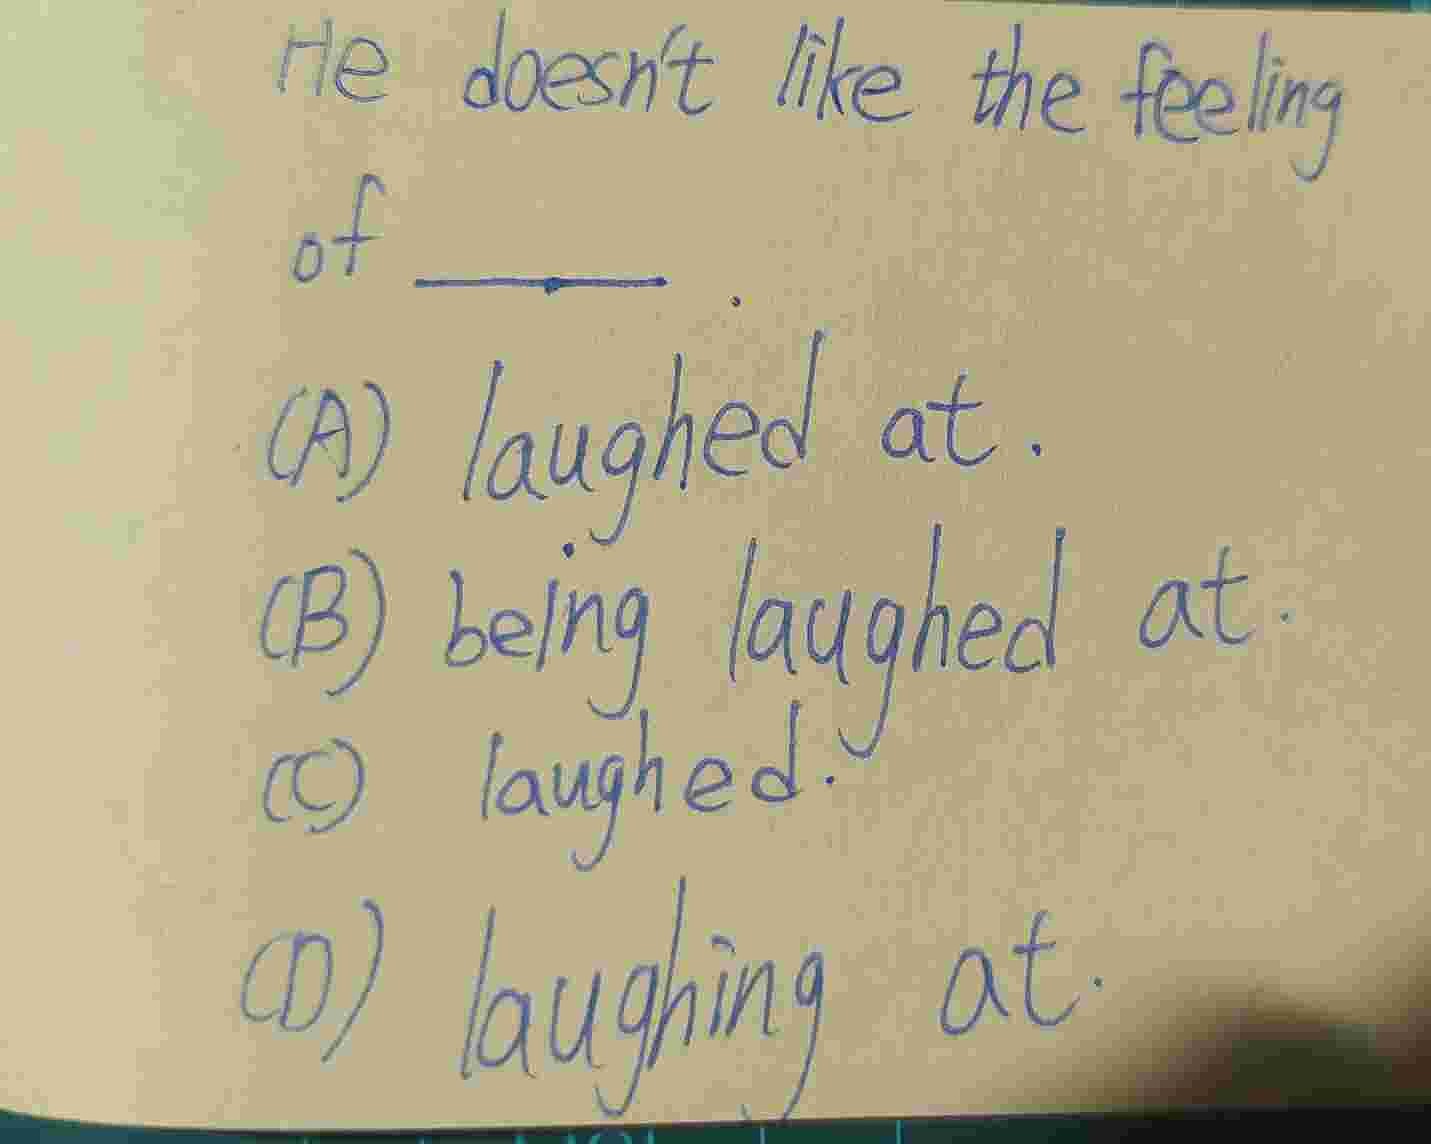 He doesn't like the feeling
of ______ .
(A) laughed at.
(B) being laughed at.
(C) laughed.
(D) laughing at.